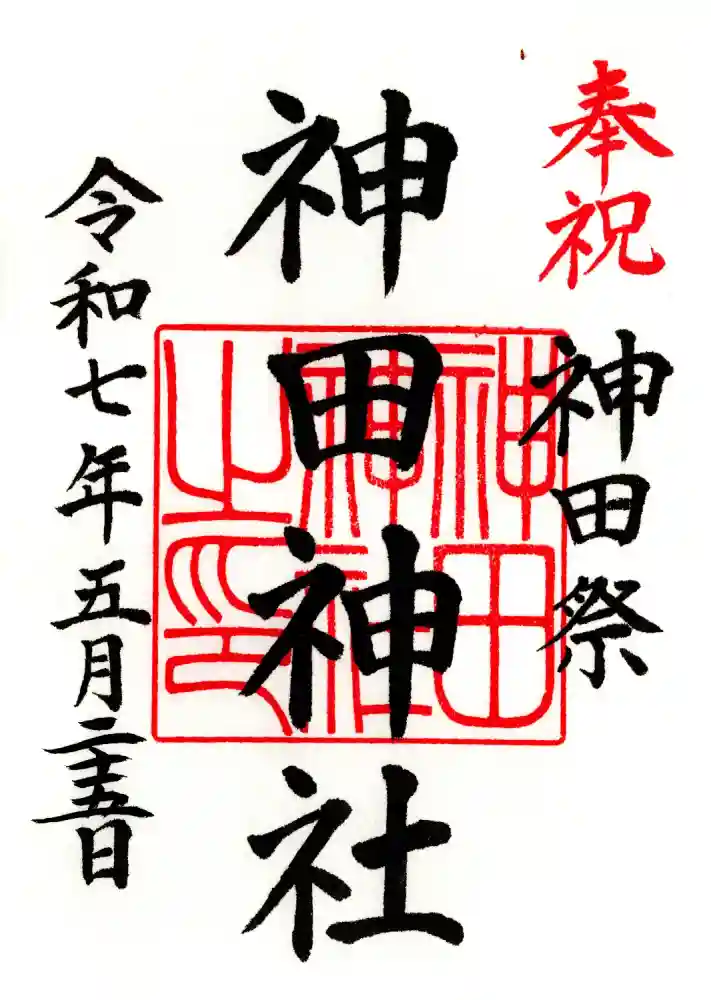 奉祝
神田祭
神田神社
神田神社之印
令和七年五月二十五日